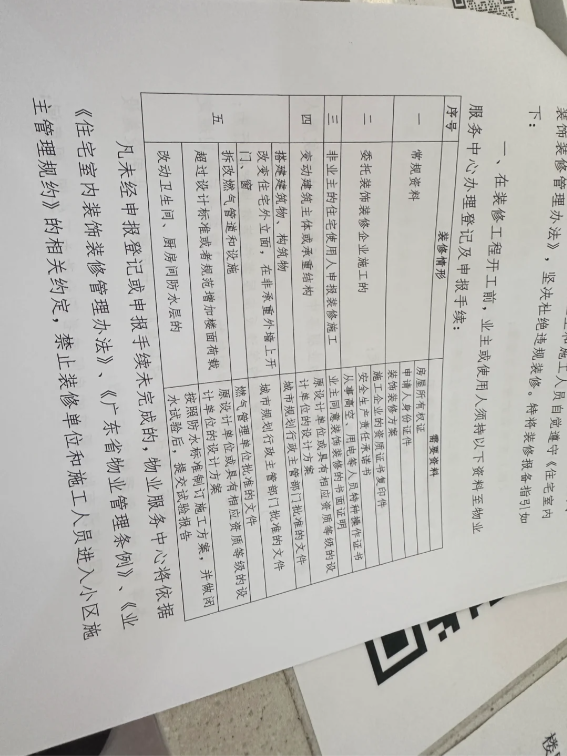 装饰装修管理办法》，坚决杜绝违规装修。特将装修报备指引如
下：
一、在装修工程开工前，业主或使用人须持以下资料至物业
服务中心办理登记及申报手续：
序号 装修情形 需要资料
一 常规资料 房屋所有权证
申请人身份证件
装饰装修方案
二 委托装饰装修企业施工的 施工企业的资质证书复印件
安全生产责任承诺书
从事高空、用电等人员特种操作证书
三 非业主的住宅使用人申报装修施工 业主同意装饰装修的书面证明
四 变动建筑主体或承重结构 原设计单位或具有相应资质等级的设
计单位的设计方案
五 搭建建筑物、构筑物 城市规划行政主管部门批准的文件
改变住宅外立面，在非承重外墙上开
门、窗 城市规划行政主管部门批准的文件
拆改燃气管道和设施 燃气管理单位批准的文件
超过设计标准或者规范增加楼面荷载 原设计单位或具有相应资质等级的设
计单位的设计方案
改动卫生间、厨房间防水层的 按照防水标准制订施工方案，并做闭
水试验后，提交试验报告
凡未经申报登记或申报手续未完成的，物业服务中心将依据
《住宅室内装饰装修管理办法》、《广东省物业管理条例》、《业
主管理规约》的相关约定，禁止装修单位和施工人员进入小区施